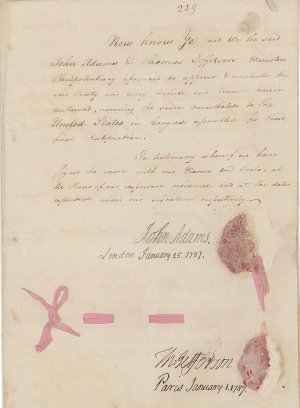 239
Now know Ye that We the said
John Adams & Thomas Jefferson Ministers
Plenipotentiary aforesaid do approve & conclude the
said Treaty and every Article and Clause therein
contained, reserving the same nevertheless to the
United States in Congress assembled for their
final Ratification.
In testimony whereof we have
signed the same with our Names and Seals, at
the Places of our respective residence and at the dates
expressed under our signatures respectively.
John Adams.
London January 25. 1787.
Th: Jefferson
Paris January 1. 1787.